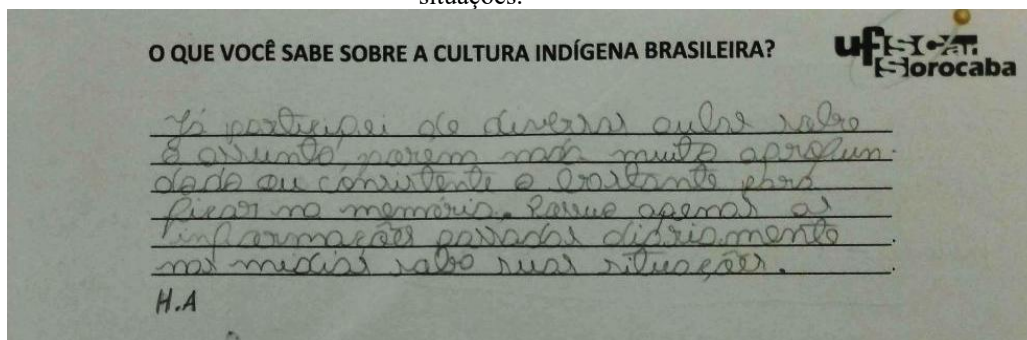 situações.
O QUE VOCÊ SABE SOBRE A CULTURA INDÍGENA BRASILEIRA?
ufscar
Sorocaba
Já participei de diversas aulas sobre
o assunto, porem nada muito aprofun-
dado ou consistente o bastante para
ficar na memória. Possuo apenas as
informações passadas diáriamente
nas mídias sobre suas situações.
H.A